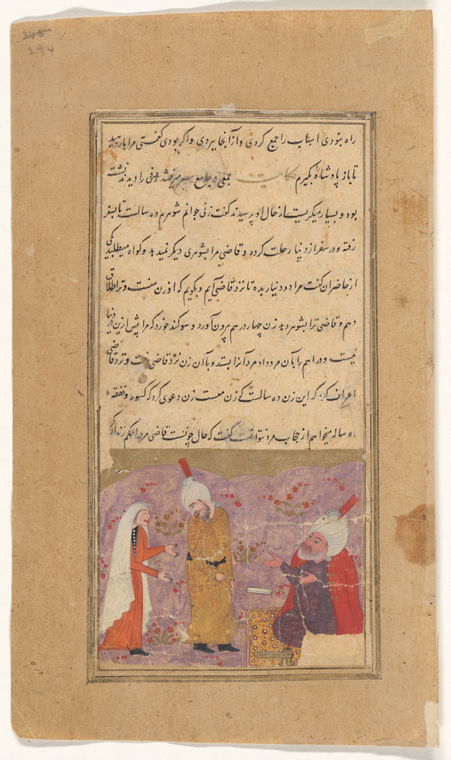 345
294
راه بنودی اسباب را جمع کردی و از آنجا ببردی و اگر بودی گفتی مرا باردهید
تا باز پادشاه را بگیرم حکایت جمعی در جامع زنی را دیدند نشسته
بود و بسیار میگریست از حال او پرسیدند گفت زنی جوانم شوهرم ده سالست تا بسفر
رفته و در سفر از دنیا رحلت کرده و قاضی مرا بشوهری دیگر نمیدهد و گواه میطلبد یکی
از حاضران گفت مرا دو دینار بده تا نزد قاضی آیم و بگویم که او زن منست و ترا طلاق
دهم و قاضی ترا بشوهر دهد زن چهار درهم بیرون آورد و سوگند خورد که مرا پیش ازین در دنیا
نیست و دراهم را بآن مرد داد مرد آنرا بستد و با آن زن نزد قاضی رفت و نزد قاضی
اعتراف کرد که این زن ده سالست که زن منست زن دعوی کرد که کسوه و نفقه
ده ساله میخواهم از حجاب مرد نتوانست گفت که حال چونست قاضی مرد را حکم زندان کرد